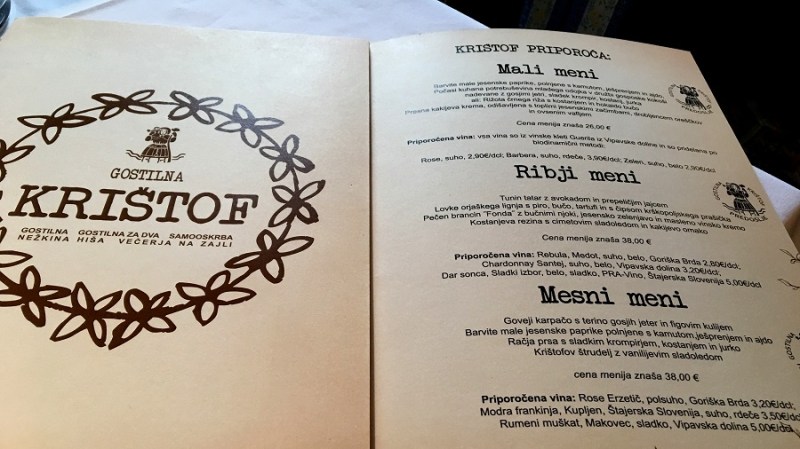 GOSTILNA
KRIŠTOF
GOSTILNA GOSTILNA ZA DVA SAMOOSKRBA
NEŽKINA HIŠA VEČERJA NA ZAJLI
KRIŠTOF PRIPOROČA:
Mali meni
Barvite male jesenske paprike, polnjene s kamutom, ješprenjem in ajdo
Počasi kuhana potrebuševina mladega odojka v družbi gosposke kokoši
nadevane z gosjimi jetri, sladek krompir, kostanj, jurka
ali: Rižota črnega riža s kostanjem in hokaido bučo
Presna kakijeva krema, odišavljena s toplimi jesenskim začimbami, drobljencem oreškov
in ovsenim vafljem
Cena menija znaša 26,00 €
Priporočena vina: vsa vina so iz vinske kleti Guerila iz Vipavske doline in so pridelana po
biodinamični metodi:
Rose, suho, 2,90€/dcl; Barbara, suho, rdeča, 3,90€/dcl; Zelen, suho, belo 2,90€/dcl
Ribji meni
Tunin tatar z avokadom in prepeličjim jajcem
Lovke orjaškega lignja s piro, bučo, tartufi in s čipsom krškopoljskega prašička
Pečen brancin "Fonda" z bučnimi njoki, jesensko zelenjavo in masleno vinsko kremo
Kostanjeva rezina s cimetovim sladoledom in kakijevo omako
Cena menija znaša 38,00 €
Priporočena vina: Rebula, Medot, suho, belo, Goriška Brda 2,80€/dcl;
Chardonnay Santej, suho, belo, Vipavska dolina 3,20€/dcl;
Dar sonca, Sladki izbor, belo, sladko, PRA-Vino, Štajerska Slovenija 5,00€/dcl
Mesni meni
Goveji karpačo s terino gosjih jeter in figovim kulijem
Barvite male jesenske paprike polnjene s kamutom,ješprenjem in ajdo
Račja prsa s sladkim krompirjem, kostanjem in jurko
Krištofov štrudelj z vanilijevim sladoledom
cena menija znaša 38,00 €
Priporočena vina: Rose Erzetič, polsuho, Goriška Brda 3,20€/dcl;
Modra frankinja, Kupljen, Štajerska Slovenija, suho, rdeče 3,50€/dcl
Rumeni muškat, Makovec, sladko, Vipavska dolina 5,00€/dcl